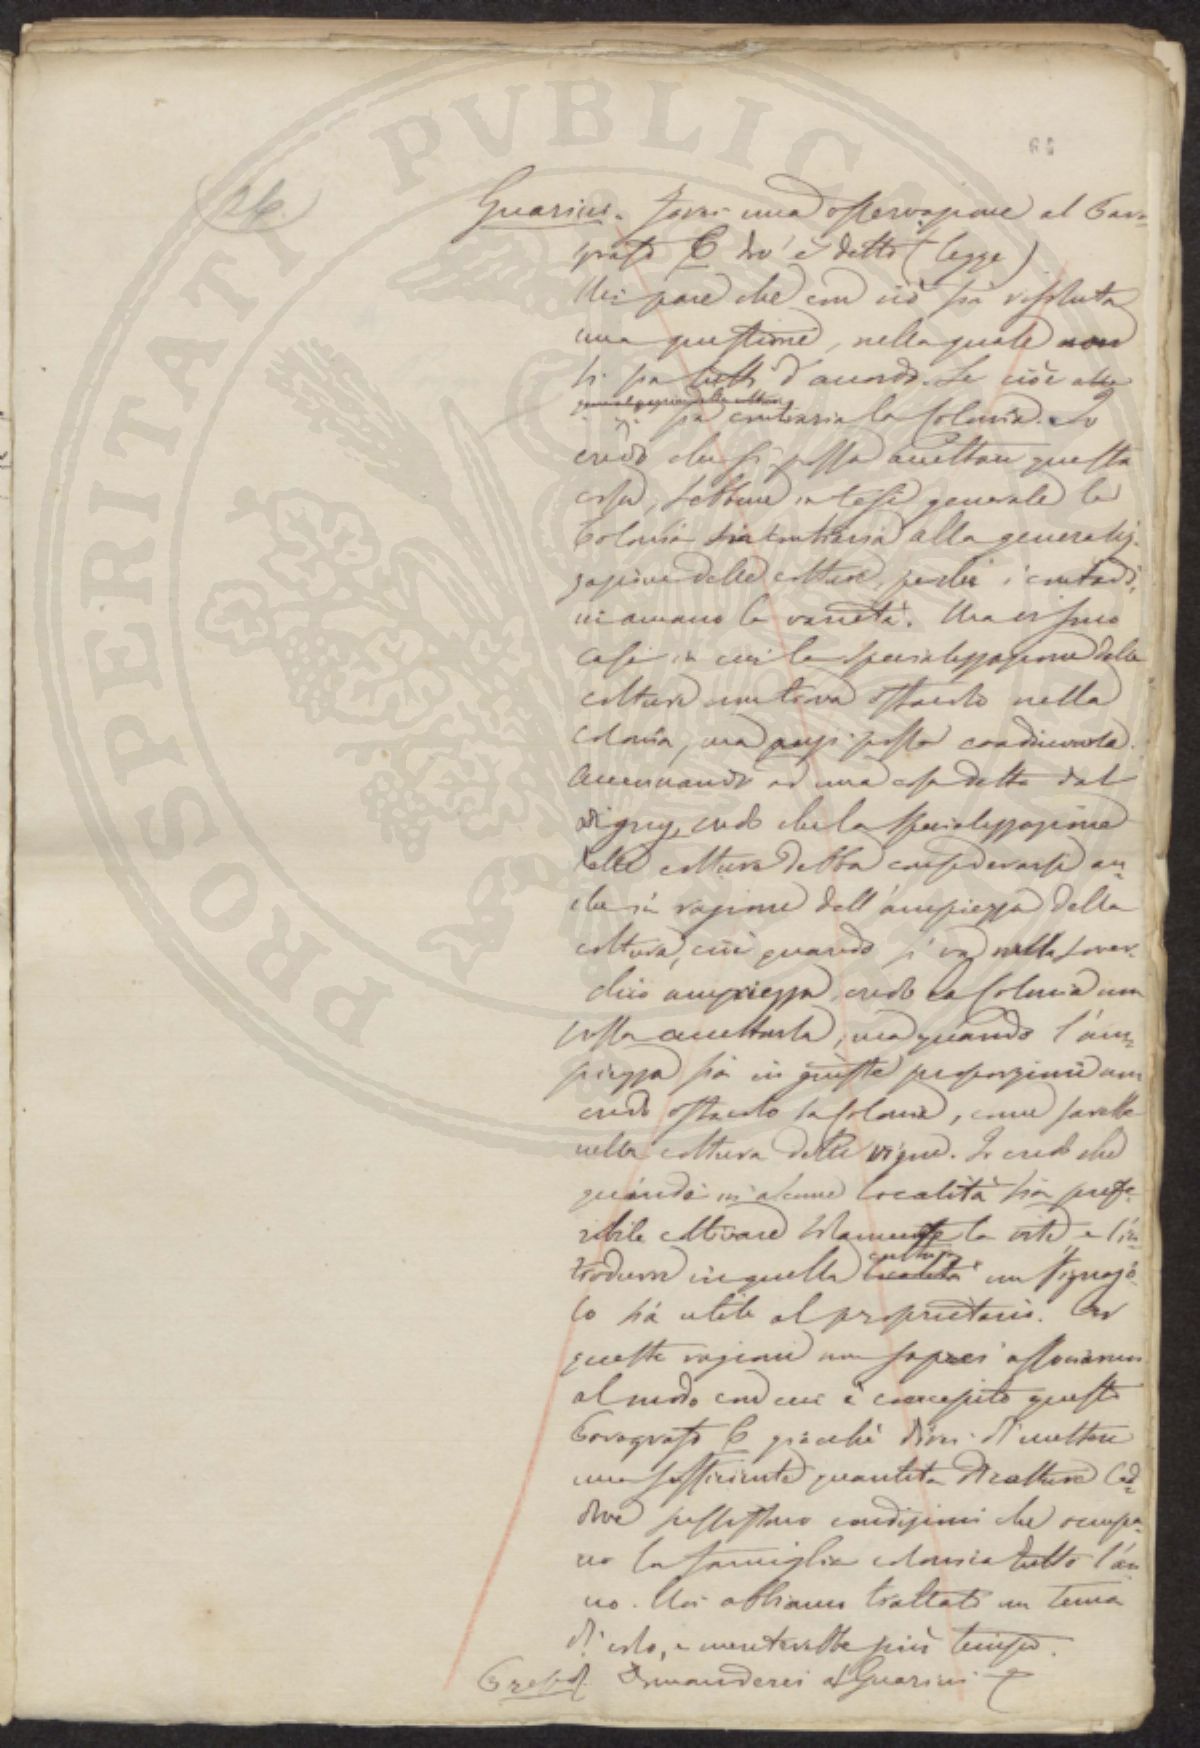 PROSPERITATI PVBLICAE
26.
Guarini. Farei una osservazione al Para-
grafo C dov'è detto (legge)
Mi pare che con ciò sia risoluta
una questione, nella quale non
si sia tutti d'accordo. Se cioè alla
sia contraria la Colonia. Io
credo che si possa accettare questa
cosa, sebbene in tesi generale la
Colonia sia contraria alla generaliz-
zazione delle colture, perché i contadi-
ni amano la varietà. Ma vi sono
casi in cui la specializzazione delle
colture non trova ostacolo nella
colonia, ma anzi possa coadiuvarla.
Accennando ad una cosa detta dal
credo che la specializzazione
delle colture debba considerarsi an-
che in ragione dell'ampiezza della
coltura, cioè quando si va nella sover-
chia ampiezza, credo la Colonia non
possa accettarla, ma quando l'am-
piezza sia in giuste proporzioni non
credo ostacolo la Colonia, come sarebbe
nella coltura delle vigne. Io credo che
quando in alcune località sia prefe-
ribile coltivare solamente la vite e l'in-
trodurre in quella località coltura un vignajo-
lo sia utile al proprietario. Per
queste ragioni non saprei associarmi
al modo con cui è concepito questo
Paragrafo C giacché direi di mettere
una sufficiente quantità di colture
dove sussistano condizioni che occupa-
no la famiglia colonica tutto l'an-
no. Noi abbiamo trattato un tema
di volo, e meriterebbe più tempo.
Presid. Domanderei al Guarini